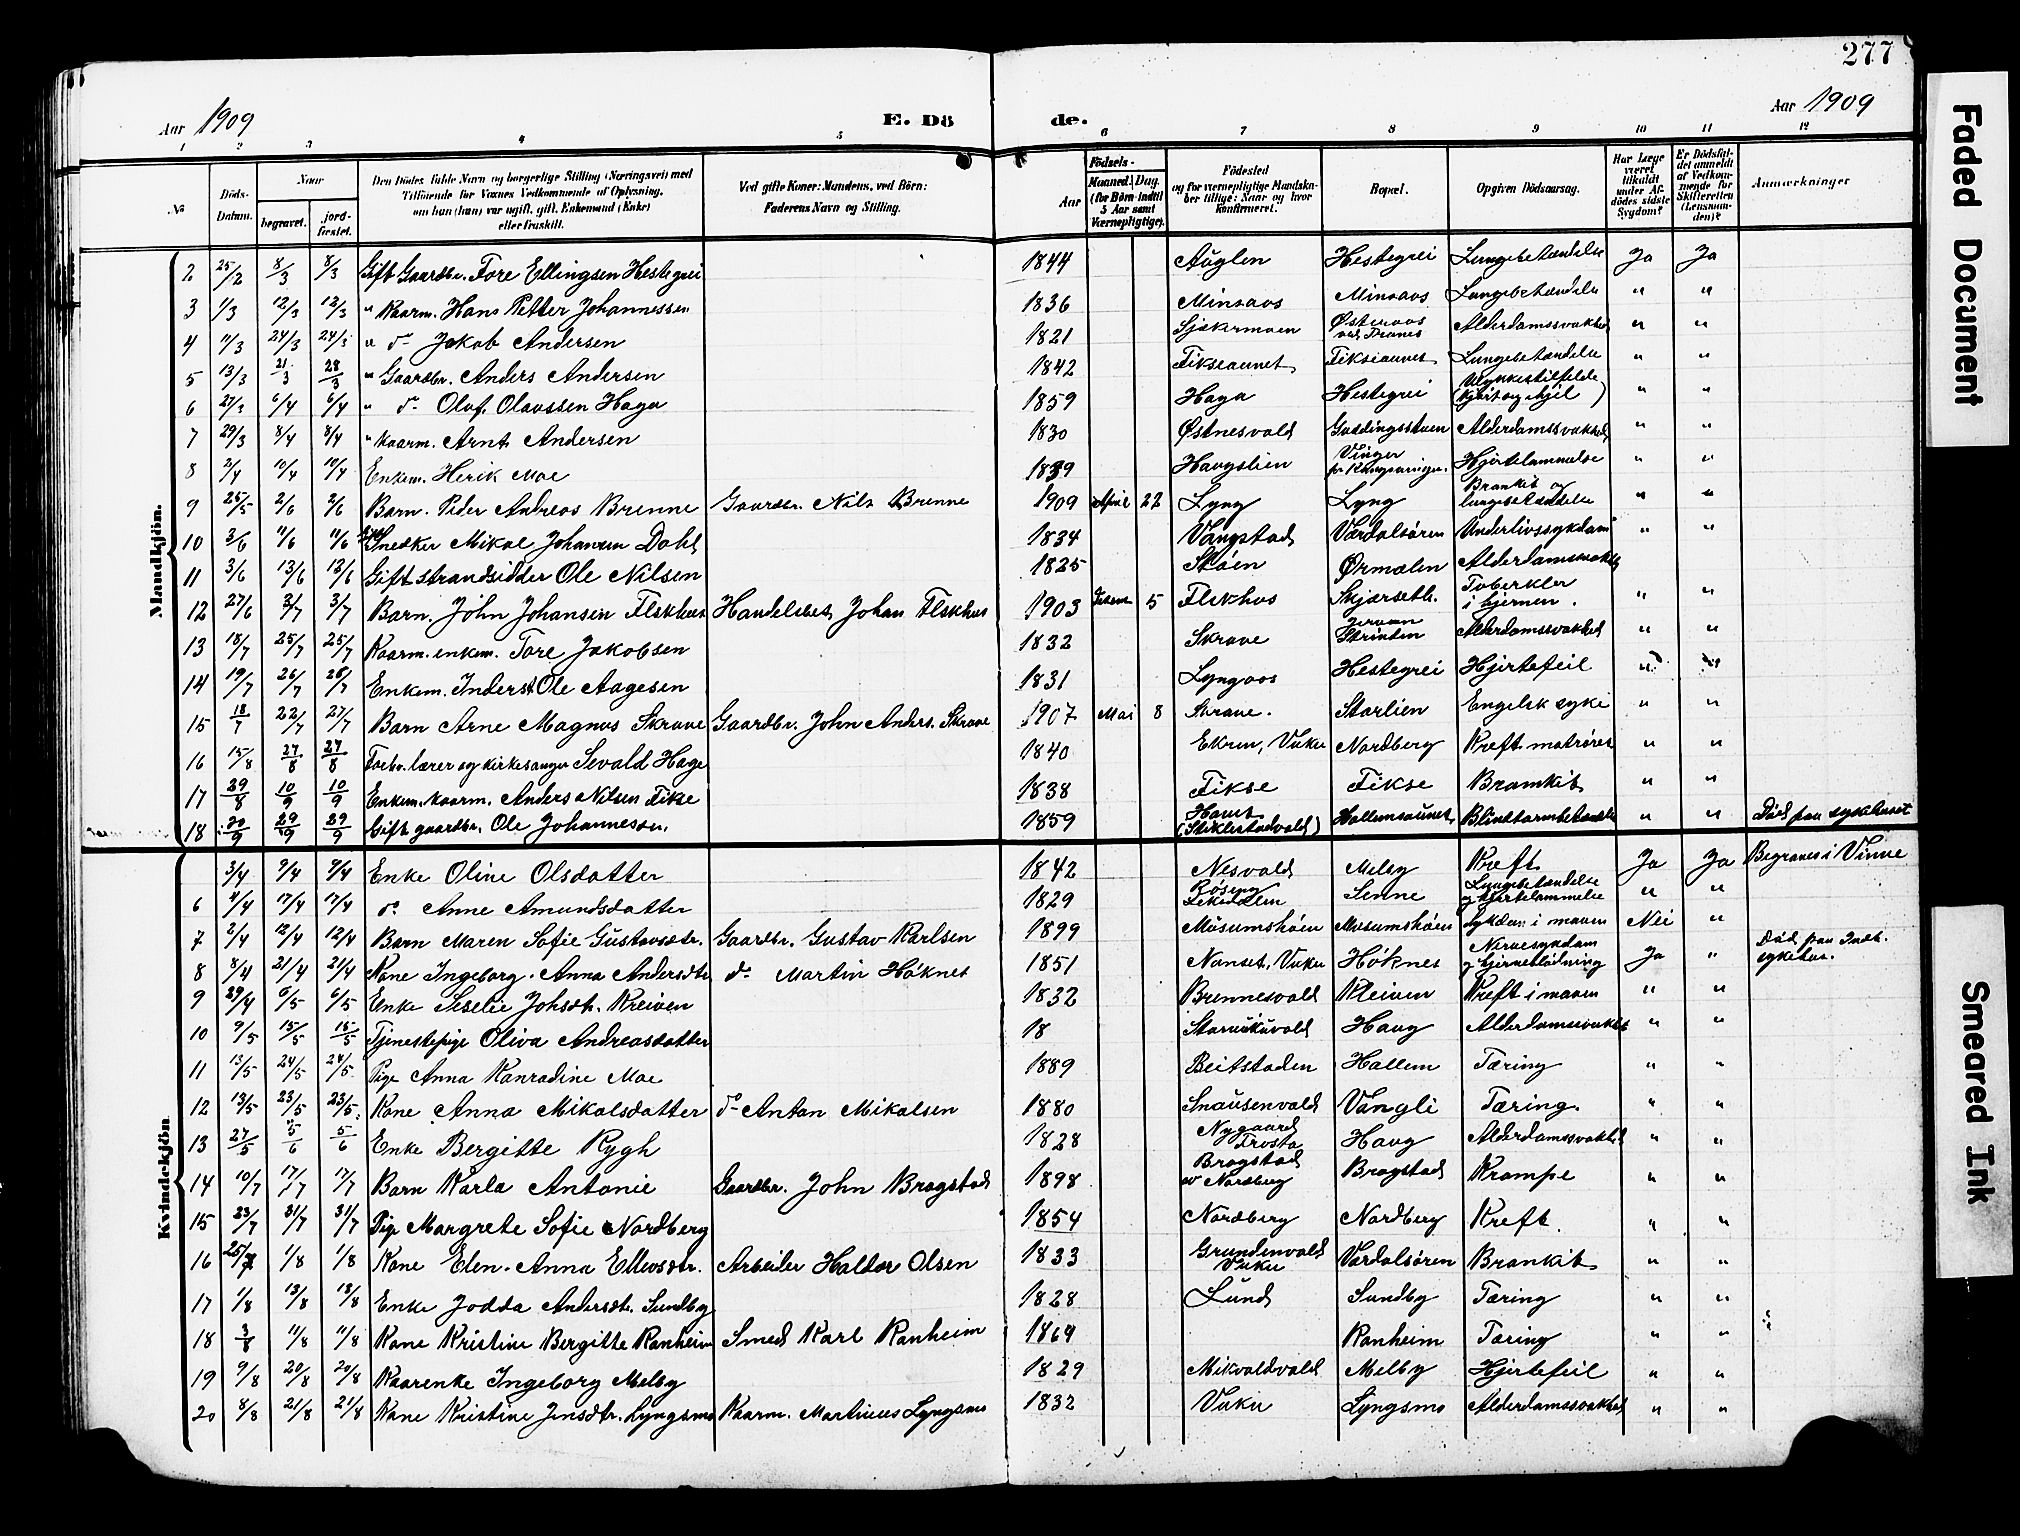 277
Aar 1909
E. Dö de.
Aar 1909
1 2 3 4 5 6 7 8 9 10 11 12
No
Döds-Datum.
Naar
begravet.
jord-fæstet.
Den Dödes fulde Navn og borgerlige Stilling (Næringsvei) med
Tilföiende for Voxnes Vedkommende af Oplysning,
om han (hun) var ugift, gift, Enkemand (Enke)
eller fraskilt.
Ved gifte Koner: Mandens, ved Börn:
Faderens Navn og Stilling.
Födsels-
Aar
Maaned. Dag.
(for Börn indtil
5 Aar samt
Værnepligtige).
Födested
og for værnepligtige Mandska-
ber tillige: Naar og hvor
Konfirmeret.
Bopæl.
Opgiven Dödsaarsag.
Har Læge
været
tilkaldt
under Af-
dödes sidste
Sygdom?
Er Dödsfal-
det anmeldt
af Vedkom-
mende for
Skifteretten
(Lensman-
den)?
Anmærkninger
Mandkjön.
2 25/2 8/3 8/3 Gift Gaardbr. Tore Ellingsen Hestegrei 1844 Auglen Hestegrei Lungebetændelse Ja Ja
3 1/3 12/3 12/3 " Kaarm. Hans Petter Johannessen 1836 Minsaas Minsaas Lungebetændelse " "
4 11/3 24/3 24/3 " do Jakob Andersen 1821 Sjækermoen Østeraas Alderdomssvakhed " "
5 13/3 21/3 28/3 " Gaardbr. Anders Andersen 1842 Fikseaunet Fikseaunet Lungebetændelse " "
6 27/3 6/4 6/4 " do Oluf Olaussen Haga 1859 Haga Hestegrei Ulykkestilfelde (kjørt og ihjel) " "
7 29/3 8/4 8/4 " Kaarm. Arnt Andersen 1830 Østnesvald Gaddingsstuen Alderdomssvakhed " "
8 2/4 10/4 10/4 Enkem. Herik Moe 1839 Haugslien Vinger Hjertelammelse " "
9 25/5 2/6 2/6 Barn. Peder Andreas Brenne Gaardbr. Nils Brenne 1909 April 22 Lyng Lyng Bronkit og lungebetændelse " "
10 3/6 11/6 11/6 Snedker Mikal Johansen Dahl 1834 Vangstad Værdalsøren Underlivssykdom " "
11 3/6 13/6 13/6 Gift strandsidder Ole Nilsen 1825 Støen Ørmelen Alderdomssvakhed
12 27/6 3/7 3/7 Barn. John Johansen Flskhus Handelsbet. Johan Flskhus 1903 5 Flskhus Skjærseth. Tuberkler i hjernen. " "
13 18/7 25/7 25/7 Kaarm. enkem. Tore Jakobsen 1832 Skrove Strinden Alderdomssvakhed " "
14 19/7 26/7 26/7 Enkem. Inderst Ole Aagesen 1831 Lyngaas Hestegrei Hjertefeil " "
15 18/7 22/7 27/7 Barn Arne Magnus Skrove Gaardbr. John Anders. Skrove 1907 Mai 8 Skrove. Storlien Engelsk syke " "
16 15/8 27/8 27/8 Forhv. lærer og kirkesanger Sevald Hage 1840 Ekren, Vuku Nordberg Kreft matrøret " "
17 29/8 10/9 10/9 Enkem. kaarm. Anders Nilsen Fikse 1838 Fikse Fikse Bronkit " "
18 20/9 29/9 29/9 Gift gaardbr. Ole Johannessen. 1859 (Stiklestadvald) Hallemsaunet Blindtarmbetændelse " " Død paa sykehuset
Kvindekjön
3/4 9/4 9/4 Enke Oline Olsdatter 1842 Nesvald Melby Kreft Ja Ja Begraves i Vinne
6 4/4 17/4 17/4 do Anne Amundsdatter 1829 Røseng Lekedalen Senne Lungebetændelse og hjertelammelse " "
7 2/4 12/4 12/4 Barn Maren Sofie Gustavsdtr. Gaardbr. Gustav Karlsen 1899 Musumshøin Musumshøin Sykdom i maven Nei "
8 8/4 21/4 21/4 Kone Ingeborg Anna Andersdtr do Martin Høknes 1851 Nanset, Vuku Høknes Nervesykdom og hjerneblødning Ja " Død paa Indh. sykehus.
9 29/4 6/5 6/5 Enke Seselie Johsdtr. Kleiven 1832 Brennesvald Kleiven Kreft i maven " "
10 9/5 15/5 15/5 Tjenestepige Oliva Andreasdatter 18 Haug Alderdomssvakhet " "
11 13/5 24/5 24/5 Pige Anna Konradine Moe 1889 Beitstaden Hallem Tæring " "
12 13/5 23/5 23/5 Kone Anna Mikalsdatter do Anton Mikalsen 1880 Snausenvald Vangli Tæring. " "
13 27/5 5/6 5/6 Enke Bergitte Rygh 1828 Nygaard Frosta Haug Alderdomssvakhed " "
14 10/7 17/7 17/7 Barn Karla Antonie Gaardbr. John Brogstad 1898 Brogstad av Nordberg Brogstad Krampe " "
15 23/7 31/7 31/7 Pige Margrete Sofie Nordberg 1854 Nordberg Nordberg Kreft. " "
16 25/7 1/8 1/8 Kone Elen Anna Ellevsdtr. Arbeider Haldor Olsen 1833 Grundenvald Vuku Værdalsøren Bronkit " "
17 1/8 13/8 13/8 Enke Jodda Andersdtr. Sundby 1828 Lund Sundby Tæring " "
18 3/8 11/8 11/8 Kone Kristine Bergitte Ranheim Smed Karl Ranheim 1869 Ranheim Tæring " "
19 9/8 20/8 20/8 Kaarenke Ingeborg Melby 1829 Mikvoldvald Melby Hjertefeil " "
20 8/8 21/8 21/8 Kone Kristine Jensdtr. Lyngsmo Kaarm. Martinus Lyngsmo 1832 Vuku Lyngsmo Alderdomssvakhed " "
Faded Document
Smeared Ink